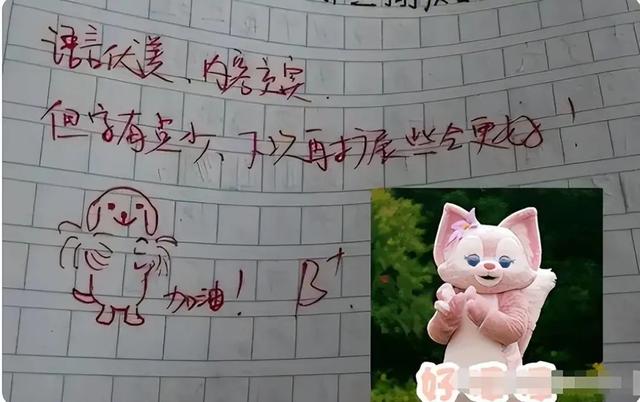 语言优美、内容充实
但字有点少、下次再扩展些会更好！
加油！
B+
好